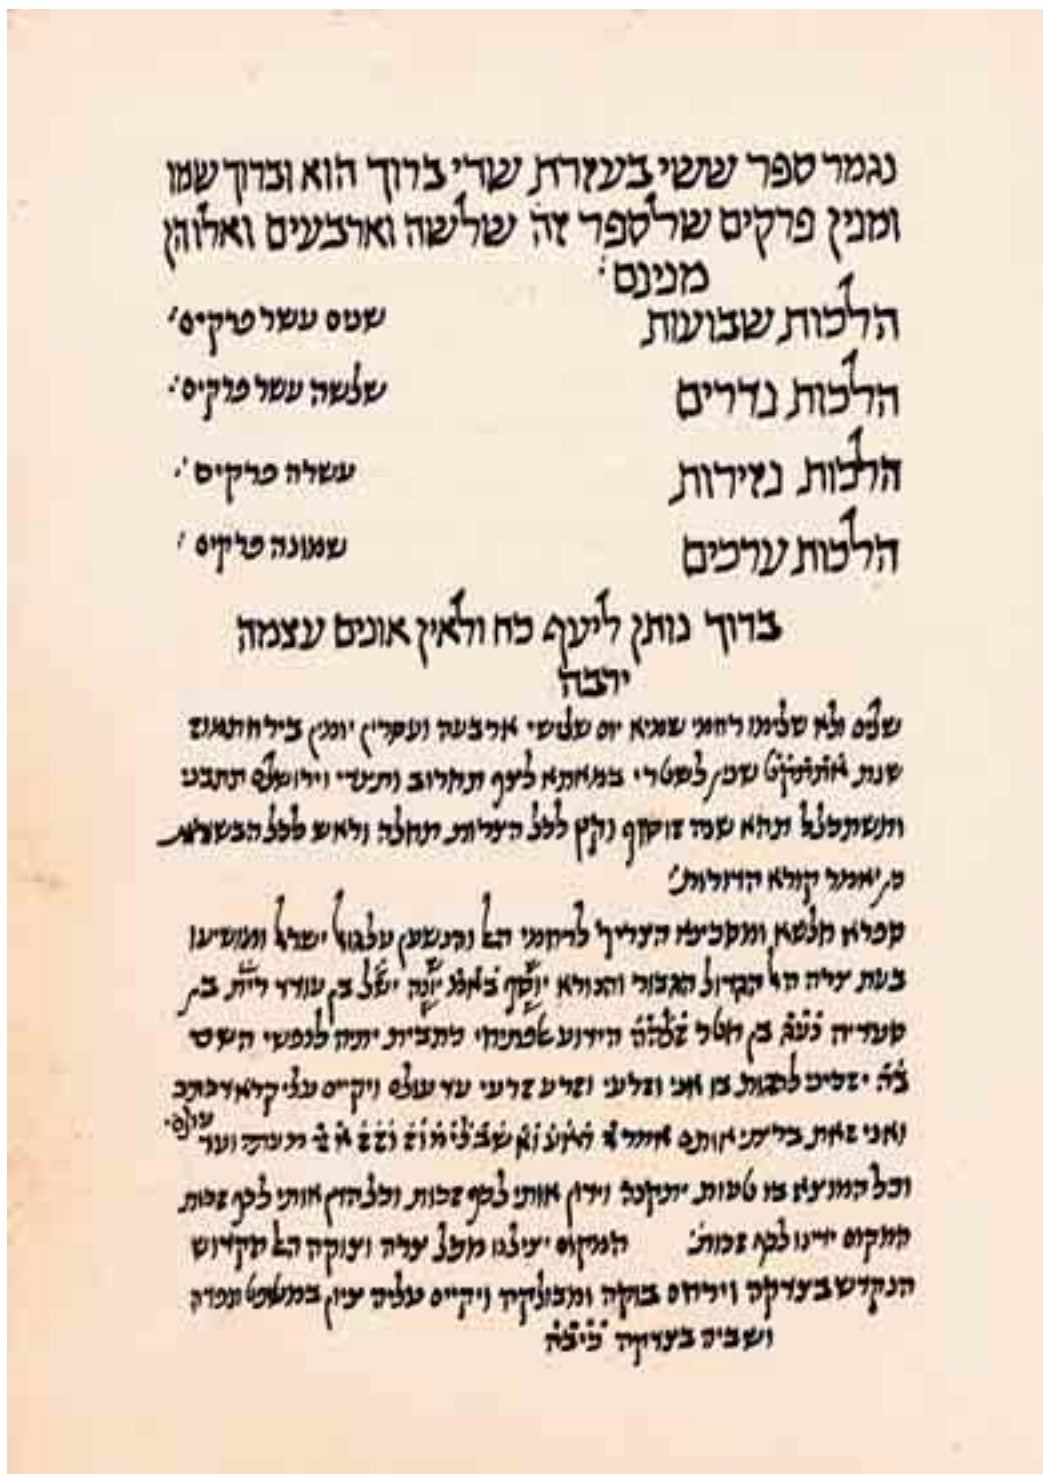 נגמר ספר ששי בעזרת שדי ברוך הוא וברוך שמו
ומנין פרקים שלספר זה שלשה וארבעים ואלוהן
מנינם
הלכות שבועות שנים עשר פרקים
הלכות נדרים שלשה עשר פרקים
הלכות נזירות עשרה פרקים
הלכות ערכים שמונה פרקים
ברוך נותן ליעף כח ולאין אונים עצמה
ירבה
שלים ולא שלימו רחמי שמיא יום שלישי ארבעה ועסרין יומין בירח תמוז
שנת לשטרי במאתא תחרוב ותצדי וירושלם תתבני
ותשתכלל תהא שנה וקץ לכל הצרות תחלה וראש לכל הבשורות
כן יאמר קורא הדורות
ספרא חלשא ומסכינא הצריך לרחמי האל והנשען על גואל ישראל ומושיעו
בעת צרה האל הגדול הגבור והנורא יוסף יונה בן עודד בן
סעדיה בן הידוע
יזכיהו להגות בו אני וזרעי וזרע זרעי עד עולם ויקיים עלי קרא דכתב
ואני זאת בריתי אותם אמר מעתה ועד עולם
וכל המוצא בו טעות יתקנה וידון אותי לכף זכות וכל הדן אותי לכף זכות
המקום ידינו לכף זכות המקום יצילנו מכל צרה וצוקה האל הקדוש
הנקדש בצדקה וירחם בוקה ומבולקה ויקיים עליה ציון במשפט תפדה
ושביה בצדקה